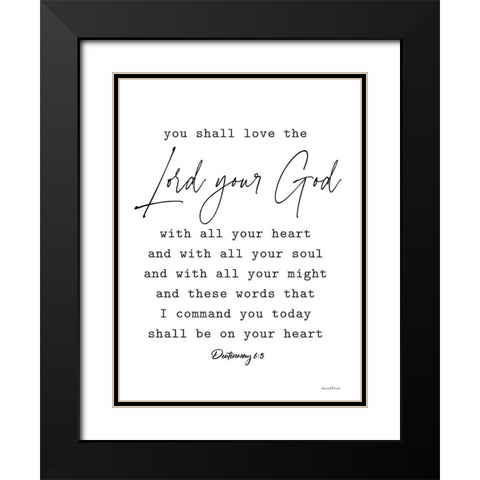 you shall love the
Lord your God
with all your heart
and with all your soul
and with all your might
and these words that
I command you today
shall be on your heart
Deuteronomy 6:5